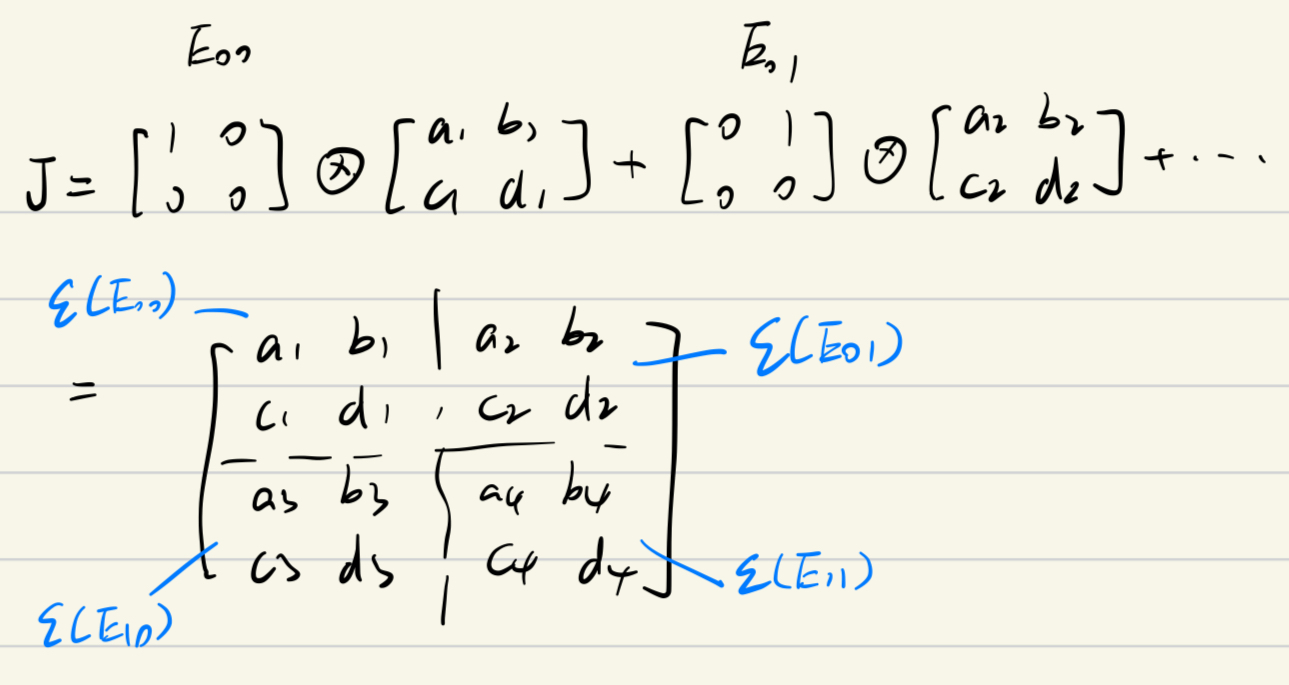 E₀₀ E₀₁
J = [1 0; 0 0] ⊗ [a₁ b₁; c₁ d₁] + [0 1; 0 0] ⊗ [a₂ b₂; c₂ d₂] + ...
ℰ(E₀₀)
= [a₁ b₁ | a₂ b₂ ℰ(E₀₁)
c₁ d₁ | c₂ d₂
a₃ b₃ | a₄ b₄
c₃ d₃ | c₄ d₄] ℰ(E₁₁)
ℰ(E₁₀)